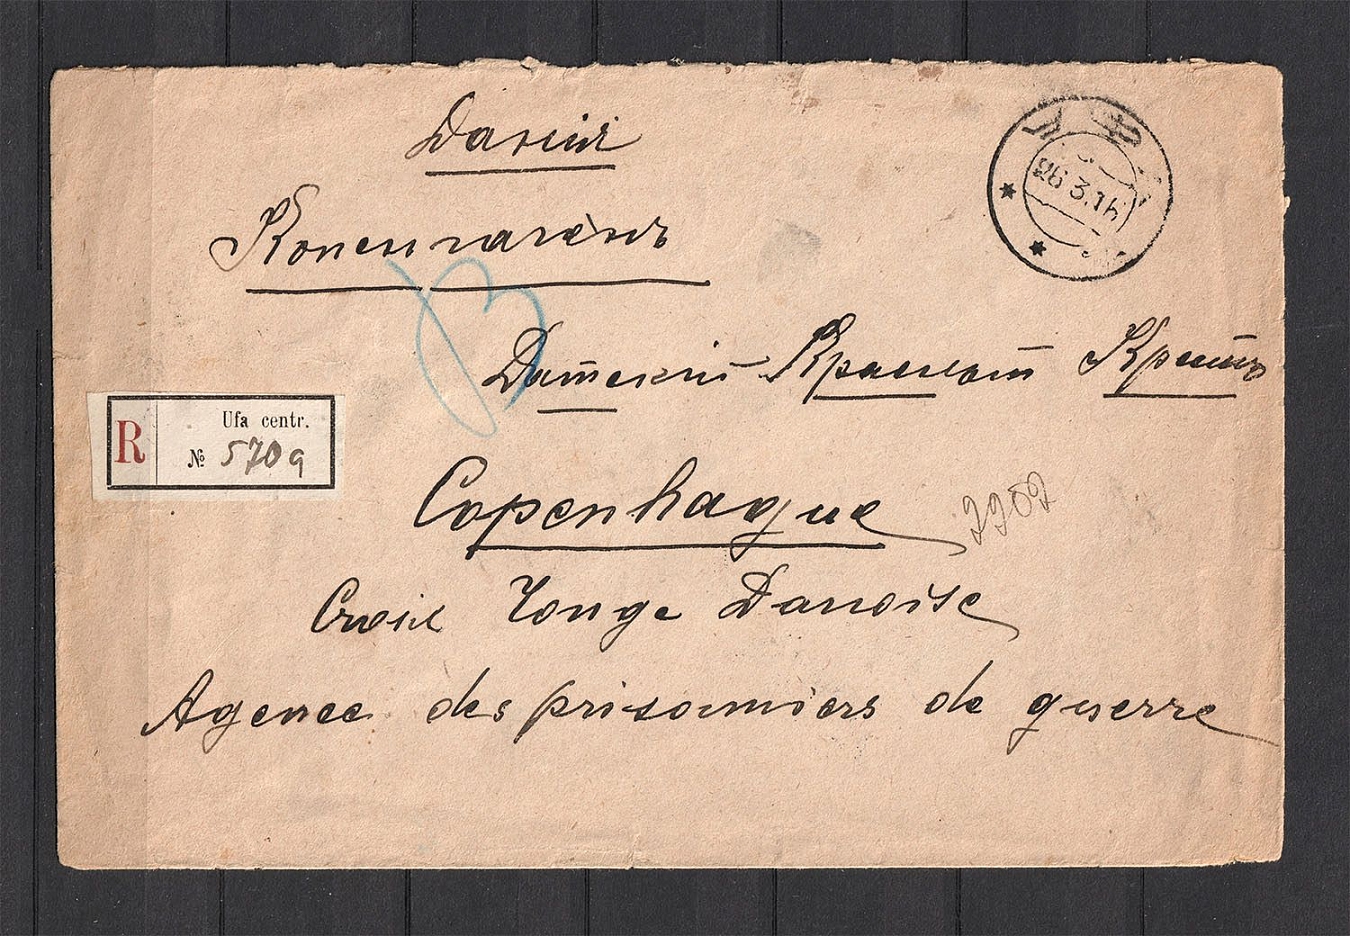 Данія
Копенгагенъ
УФА
26.3.16
Датскій Красный Крестъ
R
Ufa centr.
№ 570a
Copenhague
2202
Croix Rouge Danoise
Agence des prisonniers de guerre